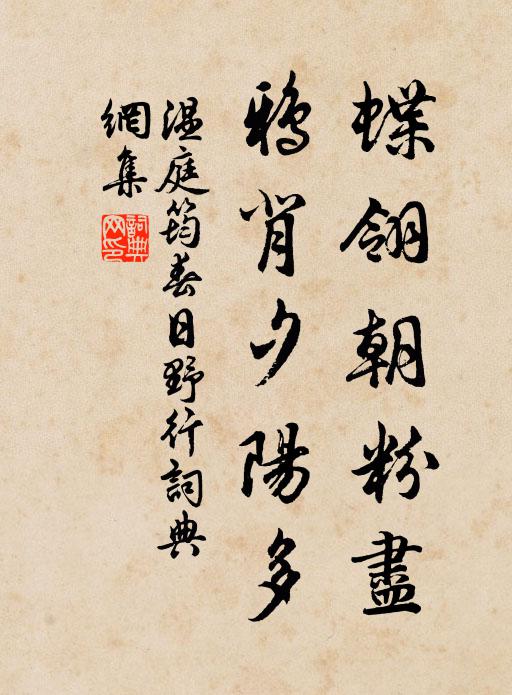 蝶翎朝粉盡
鴉背夕陽多
溫庭筠春日野行詞典
網集
詞典
网印